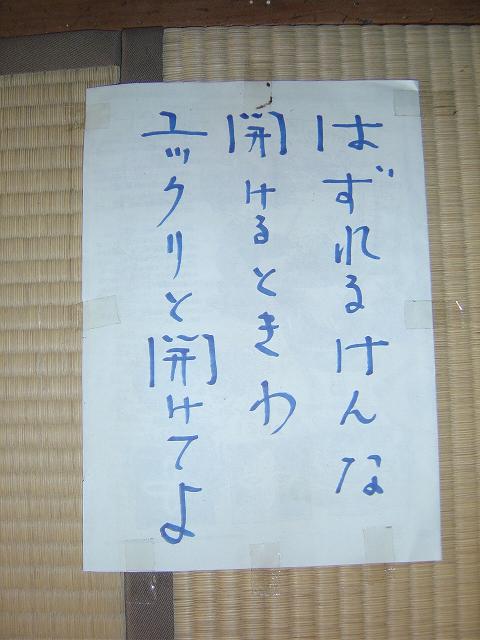 はずれるけんな
開けるときわ
ユックリと開けてよ